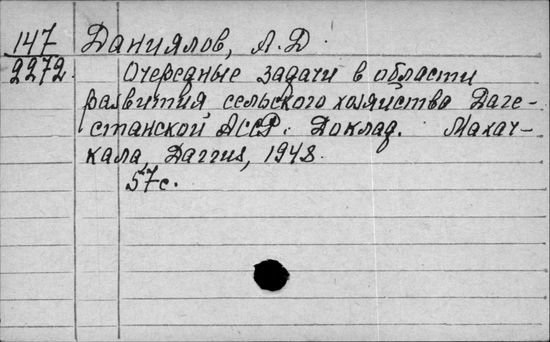 147 Даниялов, А. Д.
2272. Очередные задачи в области
развития сельского хозяйства Даге-
станской АССР. Доклад. Махач-
кала, Даггиз, 1948.
57 с.